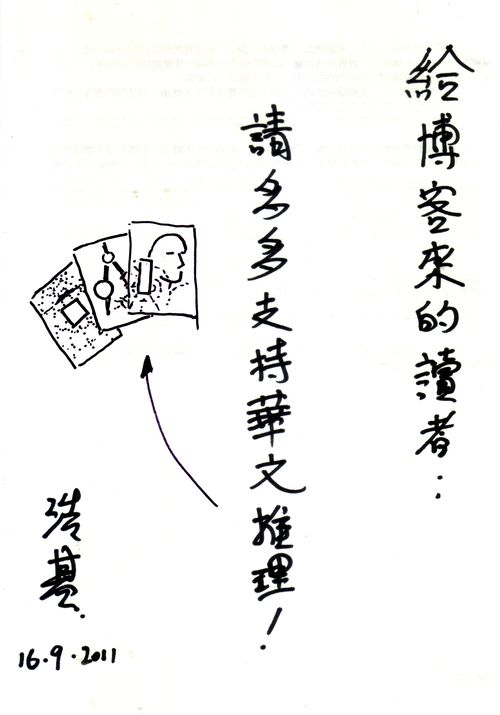 給博客來的讀者：
請多多支持華文推理！
浩基.
16.9.2011